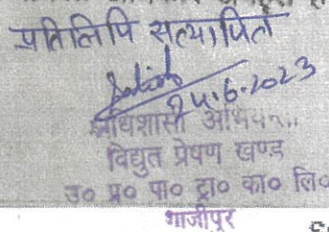 प्रतिलिपि सत्यापित
24.6.2023
अधिशासी अभियन्ता
विद्युत प्रेषण खण्ड
उ० प्र० पा० ट्रा० का० लि०
गाजीपुर